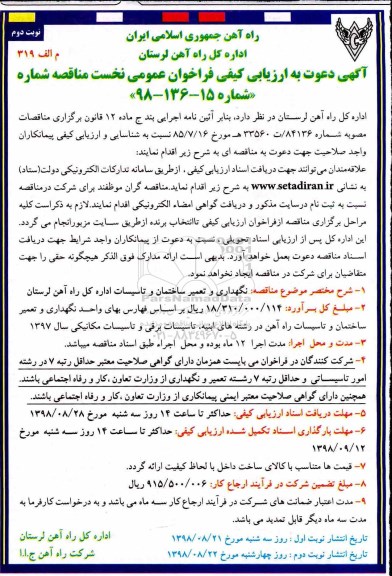 نوبت دوم
راه آهن جمهوری اسلامی ایران
اداره کل راه آهن لرستان
م الف ۳۱۹
آگهی دعوت به ارزیابی کیفی فراخوان عمومی نخست مناقصه شماره
«شماره ۱۵-۱۳۶-۹۸»
اداره کل راه آهن لرستان در نظر دارد، بنابر آئین نامه اجرایی بند ج ماده ۱۲ قانون برگزاری مناقصات
مصوبه شماره ۸۴۱۳۶/ت ۳۳۵۶۰ هـ مورخ ۸۵/۷/۱۶ نسبت به شناسایی و ارزیابی کیفی پیمانکاران
واجد صلاحیت جهت دعوت به مناقصه ای به شرح زیر اقدام نماید:
علاقه‌مندان می‌توانند جهت دریافت اسناد ارزیابی کیفی، ازطریق سامانه تدارکات الکترونیکی دولت(ستاد)
به نشانی www.setadiran.ir به شرح زیر اقدام نماید.مناقصه گران موظفند برای شرکت درمناقصه
نسبت به ثبت نام درسایت مذکور و دریافت گواهی امضاء الکترونیکی اقدام نمایند.لازم به ذکراست کلیه
مراحل برگزاری مناقصه ازفراخوان ارزیابی کیفی تاانتخاب برنده ازطریق سایت مزبورانجام می گردد.
این اداره کل پس از ارزیابی اسناد تحویلی، نسبت به دعوت از پیمانکاران واجد شرایط جهت دریافت
اسناد مناقصه دعوت بعمل خواهد آورد. بدیهی است ارائه مدارک فوق الذکر هیچگونه حقی را جهت
متقاضیان برای شرکت در مناقصه ایجاد نخواهد نمود.
۱- شرح مختصر موضوع مناقصه: نگهداری و تعمیر ساختمان و تاسیسات اداره کل راه آهن لرستان
۲- مبلغ کل برآورد: ۱۸/۳۱۰/۰۰۰/۱۱۴ ریال بر اساس فهارس بهای واحد نگهداری و تعمیر
ساختمان و تاسیسات راه آهن در رشته های ابنیه، تاسیسات برقی و تاسیسات مکانیکی سال ۱۳۹۷
۳- مدت و محل اجرا: مدت اجرا ۱۲ ماه بوده و محل اجراء طبق اسناد مناقصه میباشد.
۴- شرکت کنندگان در فراخوان می بایست همزمان دارای گواهی صلاحیت معتبر حداقل رتبه ۷ در رشته
امور تاسیساتی و حداقل رتبه ۷ رشته تعمیر و نگهداری از وزارت تعاون، کار و رفاه اجتماعی باشند.
همچنین دارای گواهی صلاحیت معتبر ایمنی پیمانکاری از وزارت تعاون، کار و رفاه اجتماعی باشند.
۵- مهلت دریافت اسناد ارزیابی کیفی: حداکثر تا ساعت ۱۴ روز سه شنبه مورخ ۱۳۹۸/۰۸/۲۸
۶- مهلت بارگذاری اسناد تکمیل شده ارزیابی کیفی: حداکثر تا ساعت ۱۴ روز سه شنبه مورخ
۱۳۹۸/۰۹/۱۲
۷- قیمت ها متناسب با کالای ساخت داخل با لحاظ کیفیت ارائه گردد.
۸- مبلغ تضمین شرکت در فرآیند ارجاع کار: ۹۱۵/۵۰۰/۰۰۶ ریال
۹- مدت اعتبار ضمانت های شرکت در فرآیند ارجاع کار سه ماه می باشد و به درخواست کارفرما به
مدت سه ماه دیگر قابل تمدید می باشد.
تاریخ انتشار نوبت اول: روز سه شنبه مورخ ۱۳۹۸/۰۸/۲۱
تاریخ انتشار نوبت دوم: روز چهارشنبه مورخ ۱۳۹۸/۰۸/۲۲
اداره کل راه آهن لرستان
شرکت راه آهن ج.ا.ا